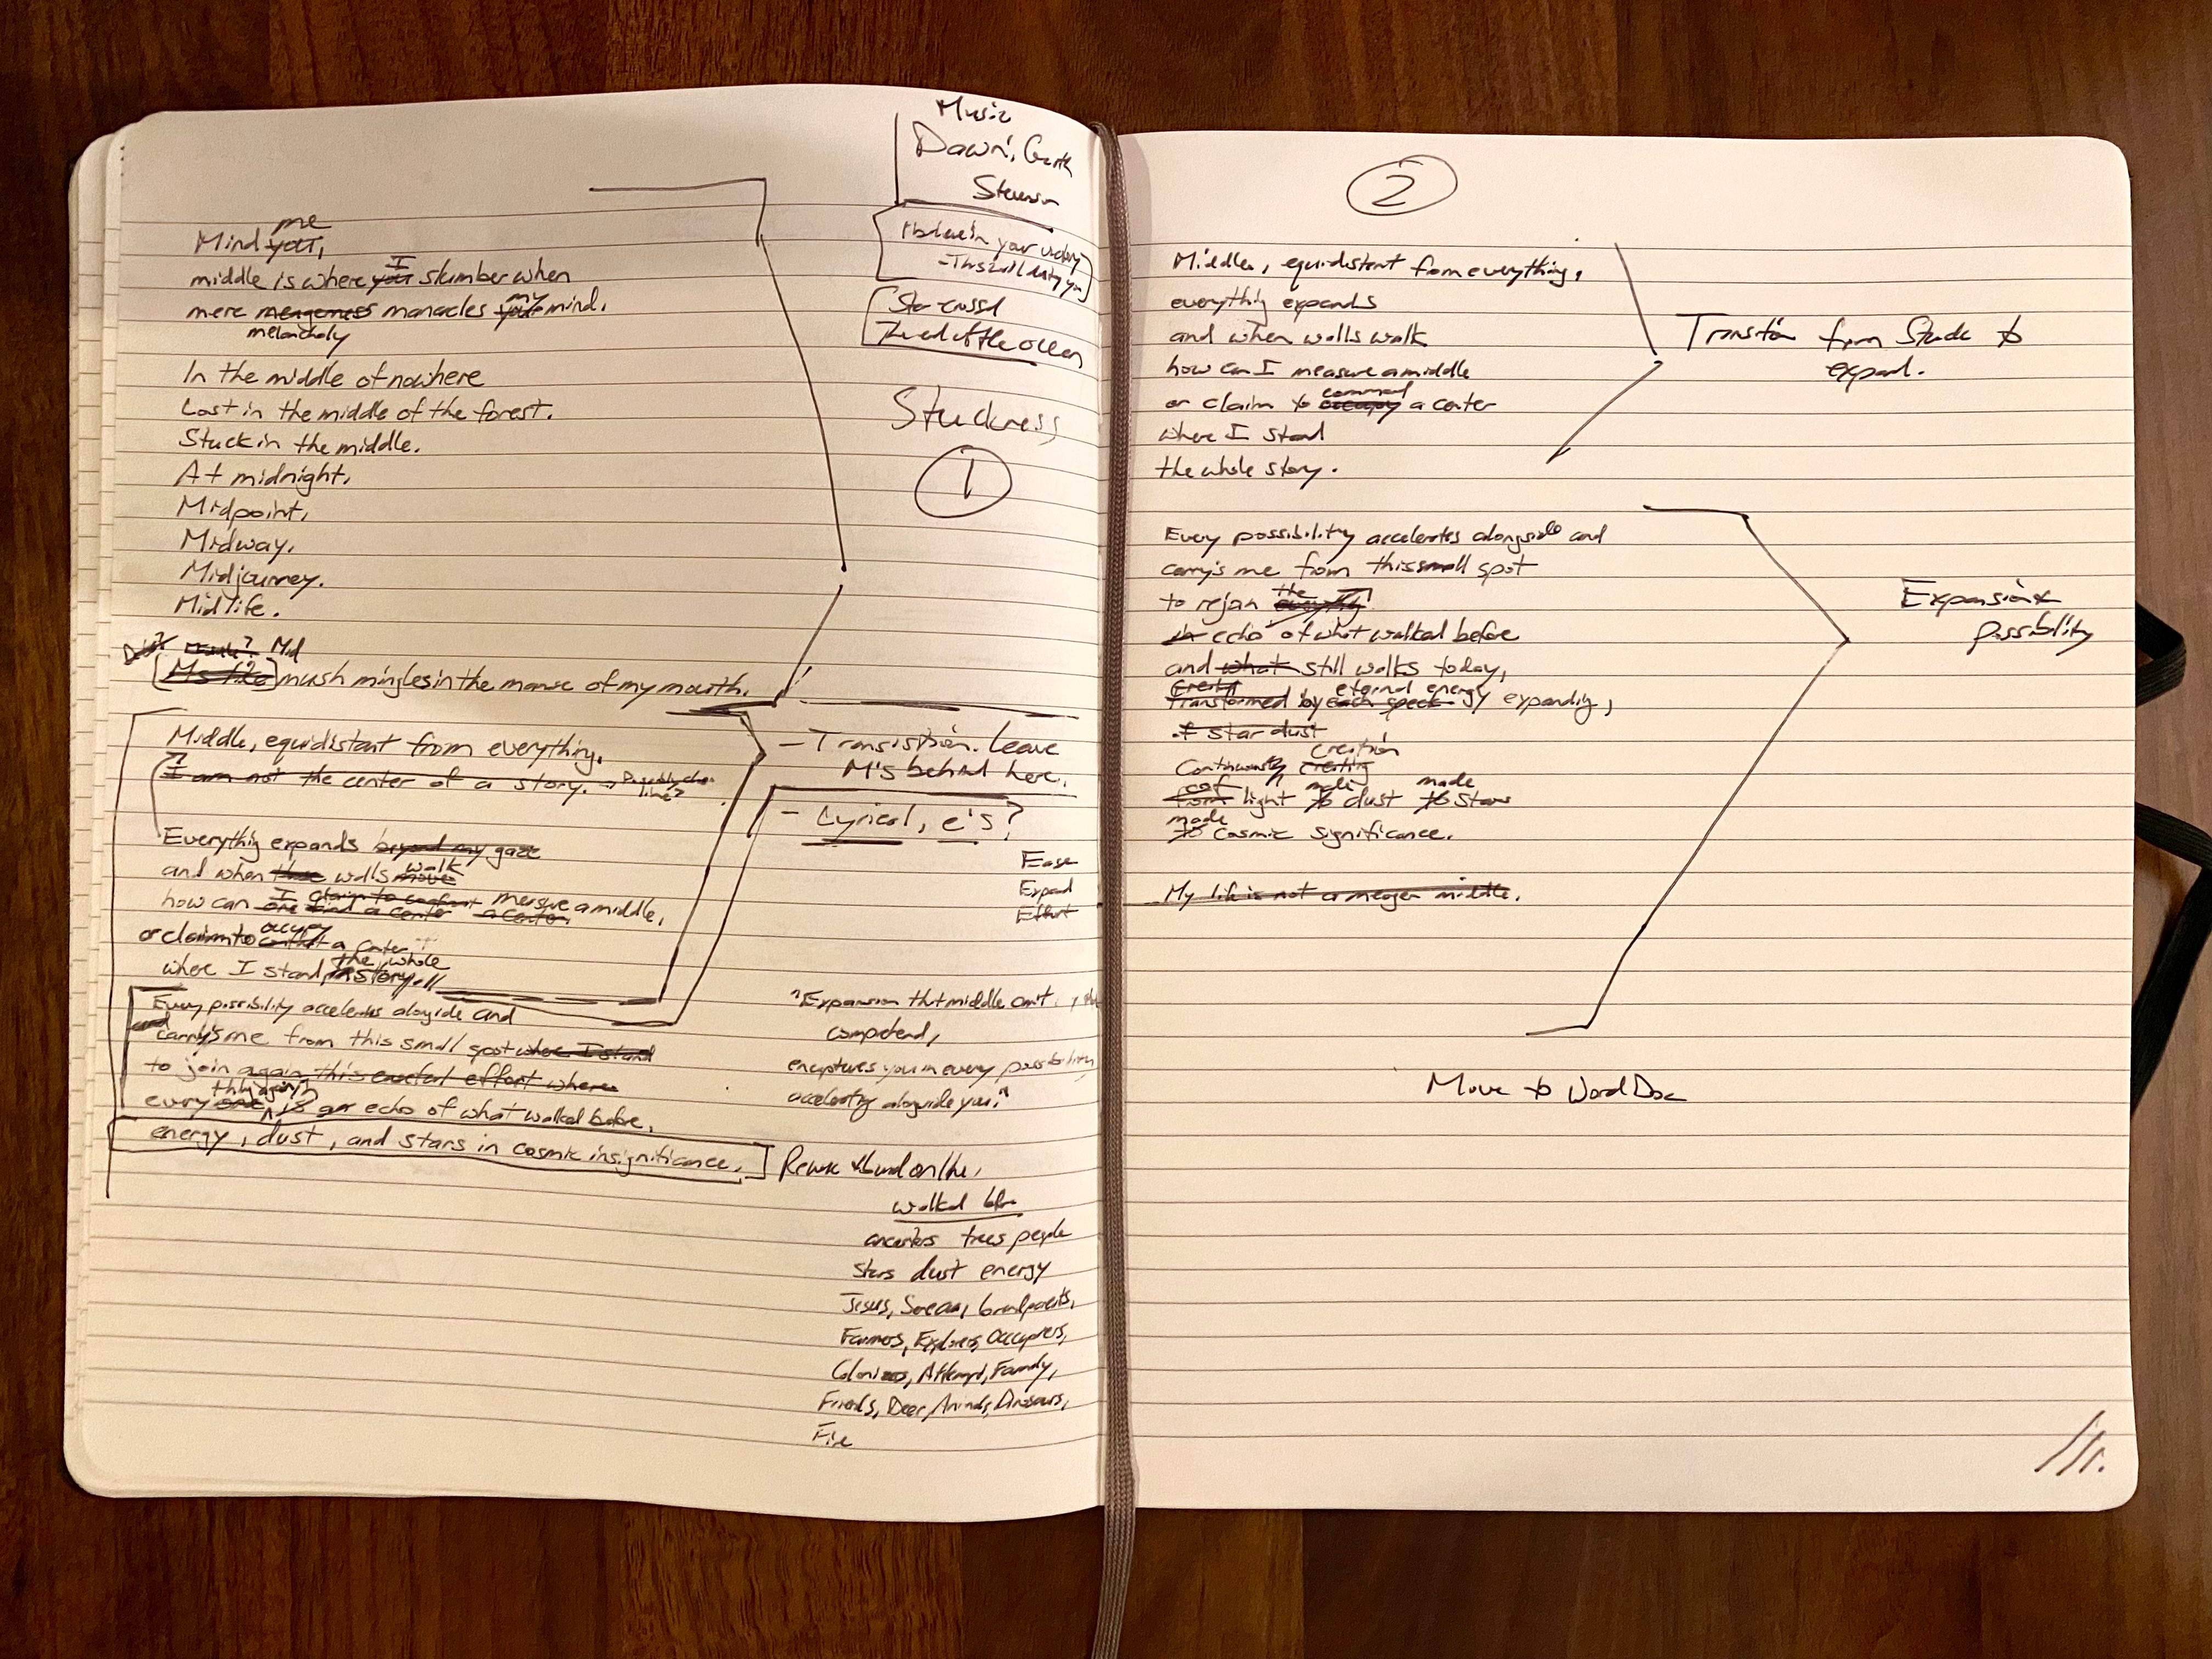 Music
Dawn, Garth
Stevenson
in your victory
Star crossed
The end of the ocean
Stuckness
1
me
Mind you,
I
middle is where you slumber when
my
mere meagerness manacles your mind.
melancholy
In the middle of nowhere
Lost in the middle of the forest.
Stuck in the middle.
At midnight,
Midpoint,
Midway,
Midjourney.
Midlife.
Mid
M's like mush mingles in the manse of my mouth.
Middle, equidistant from everything.
?
I am not the center of a story.
line?
- Transistion. Leave
M's behind here.
- Lyrical, e's?
Ease
Expand
Effort
Everything expands beyond my gaze
walk
and when these walls move
I claim to
how can one find a center a center. measure a middle,
occupy
or claim to a center
the whole
where I stand story.
Every possibility accelerates alongside and
and
carry's me from this small spot where I stand
to join again this careful effort where
thing again
every one is an echo of what walked before.
energy, dust, and stars in cosmic insignificance.
"Expansion that middle can't
comprehend,
enraptures you in every possibility
accelerating alongside you."
on the
walked before
ancestors trees people
stars dust energy
Jesus, Grandparents,
Farmers, Explorers, Occupiers,
Family,
Friends, Deer, Animals, Dinosaurs,
Fire
2
Middle, equidistant from everything,
everything expands
and when walls walk
how can I measure a middle
command
or claim to occupy a center
where I stand
the whole story.
Transition from Stuck to
expand.
Every possibility accelerates alongside and
carry's me from this small spot
the
to rejoin everything
in echo of what walked before
and what still walks today,
eternal energy
transformed by each speck expanding,
of star dust
creation
Continuously creating
of made made
from light to dust to stars
made
to cosmic significance.
My life is not a meager middle.
Expansion &
possibility
Move to Word Doc